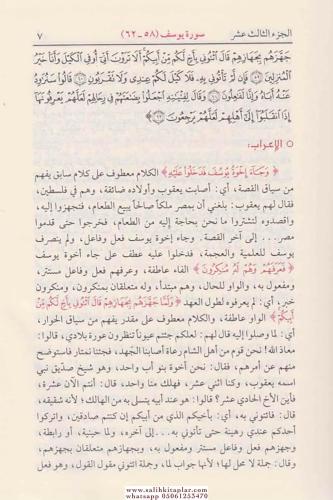 الجزء الثالث عشر سورة يوسف (٥٨ - ٦٢) ٧
جَهَّزَهُم بِجَهَازِهِمْ قَالَ ائْتُونِي بِأَخٍ لَّكُم مِّنْ أَبِيكُمْ أَلَا تَرَوْنَ أَنِّي أُوفِي الْكَيْلَ وَأَنَا خَيْرُ
الْمُنزِلِينَ ﴿٥٩﴾ فَإِن لَّمْ تَأْتُونِي بِهِ فَلَا كَيْلَ لَكُمْ عِندِي وَلَا تَقْرَبُونِ ﴿٦٠﴾ قَالُوا سَنُرَاوِدُ
عَنْهُ أَبَاهُ وَإِنَّا لَفَاعِلُونَ ﴿٦١﴾ وَقَالَ لِفِتْيَانِهِ اجْعَلُوا بِضَاعَتَهُمْ فِي رِحَالِهِمْ لَعَلَّهُمْ يَعْرِفُونَهَا
إِذَا انقَلَبُوا إِلَىٰ أَهْلِهِمْ لَعَلَّهُمْ يَرْجِعُونَ ﴿٦٢﴾
الإعراب:
﴿وَجَاءَ إِخْوَةُ يُوسُفَ فَدَخَلُوا عَلَيْهِ﴾ الكلام معطوف على كلام سابق يفهم
من سياق القصة، أي: أصابت يعقوب وأولاده ضائقة، وهم في فلسطين،
فقال لهم يعقوب: بلغني أن بمصر ملكاً صالحاً يبيع الطعام، فتجهزوا إليه،
واقصدوه لتشتروا ما نحن بحاجة إليه من الطعام، فخرجوا حتى قدموا
مصر... إلى آخر القصة. وجاء إخوة يوسف فعل وفاعل، ولم يتصرف
يوسف للعلمية والعجمة، فدخلوا عليه عطف على جاء أخوة يوسف
﴿فَعَرَفَهُمْ وَهُمْ لَهُ مُنكِرُونَ﴾ الفاء عاطفة، وعرفهم فعل وفاعل مستتر،
ومفعول به، والواو للحال، وهم مبتدأ، وله متعلقان بمنكرون، ومنكرون
خبر، أي: لم يعرفوه لطول العهد ﴿وَلَمَّا جَهَّزَهُم بِجَهَازِهِمْ قَالَ ائْتُونِي بِأَخٍ لَّكُم مِّنْ
أَبِيكُمْ﴾ الواو عاطفة، والكلام معطوف على مقدر يفهم من سياق الحوار،
أي: لما وصلوا إليه قال لهم: لعلكم جئتم عيوناً تنظرون عورة بلادي، قالوا:
معاذ الله! نحن قوم من أهل الشام رعاة أصابنا الجهد، فجئنا نمتار فاستوضح
منهم عن أمرهم، فقال: نحن أخوة بنو أب واحد، وهو شيخ صديق نبي
اسمه يعقوب، وكنا اثني عشر، فهلك منا واحد، قال: أنتم الآن عشرة،
فأين الأخ الحادي عشر؟ قالوا: هو عند أبيه يتسلى به من الهالك، لأنه شقيقه،
قال: فائتوني به، أي: بأخيكم الذي من أبيكم إن كنتم صادقين، واتركوا
أحدكم عندي رهينة حتى تأتوني به... إلى آخره، ولما حينية، أو رابطة،
وجهزهم فعل وفاعل مستتر ومفعول به، وبجهازهم متعلقان بجهزهم،
وقال: جملة لا محل لها؛ لأنها جواب لما، وجملة ائتوني مقول القول، وهو فعل
www.salihkitaplar.com
whatsapp 05061253470